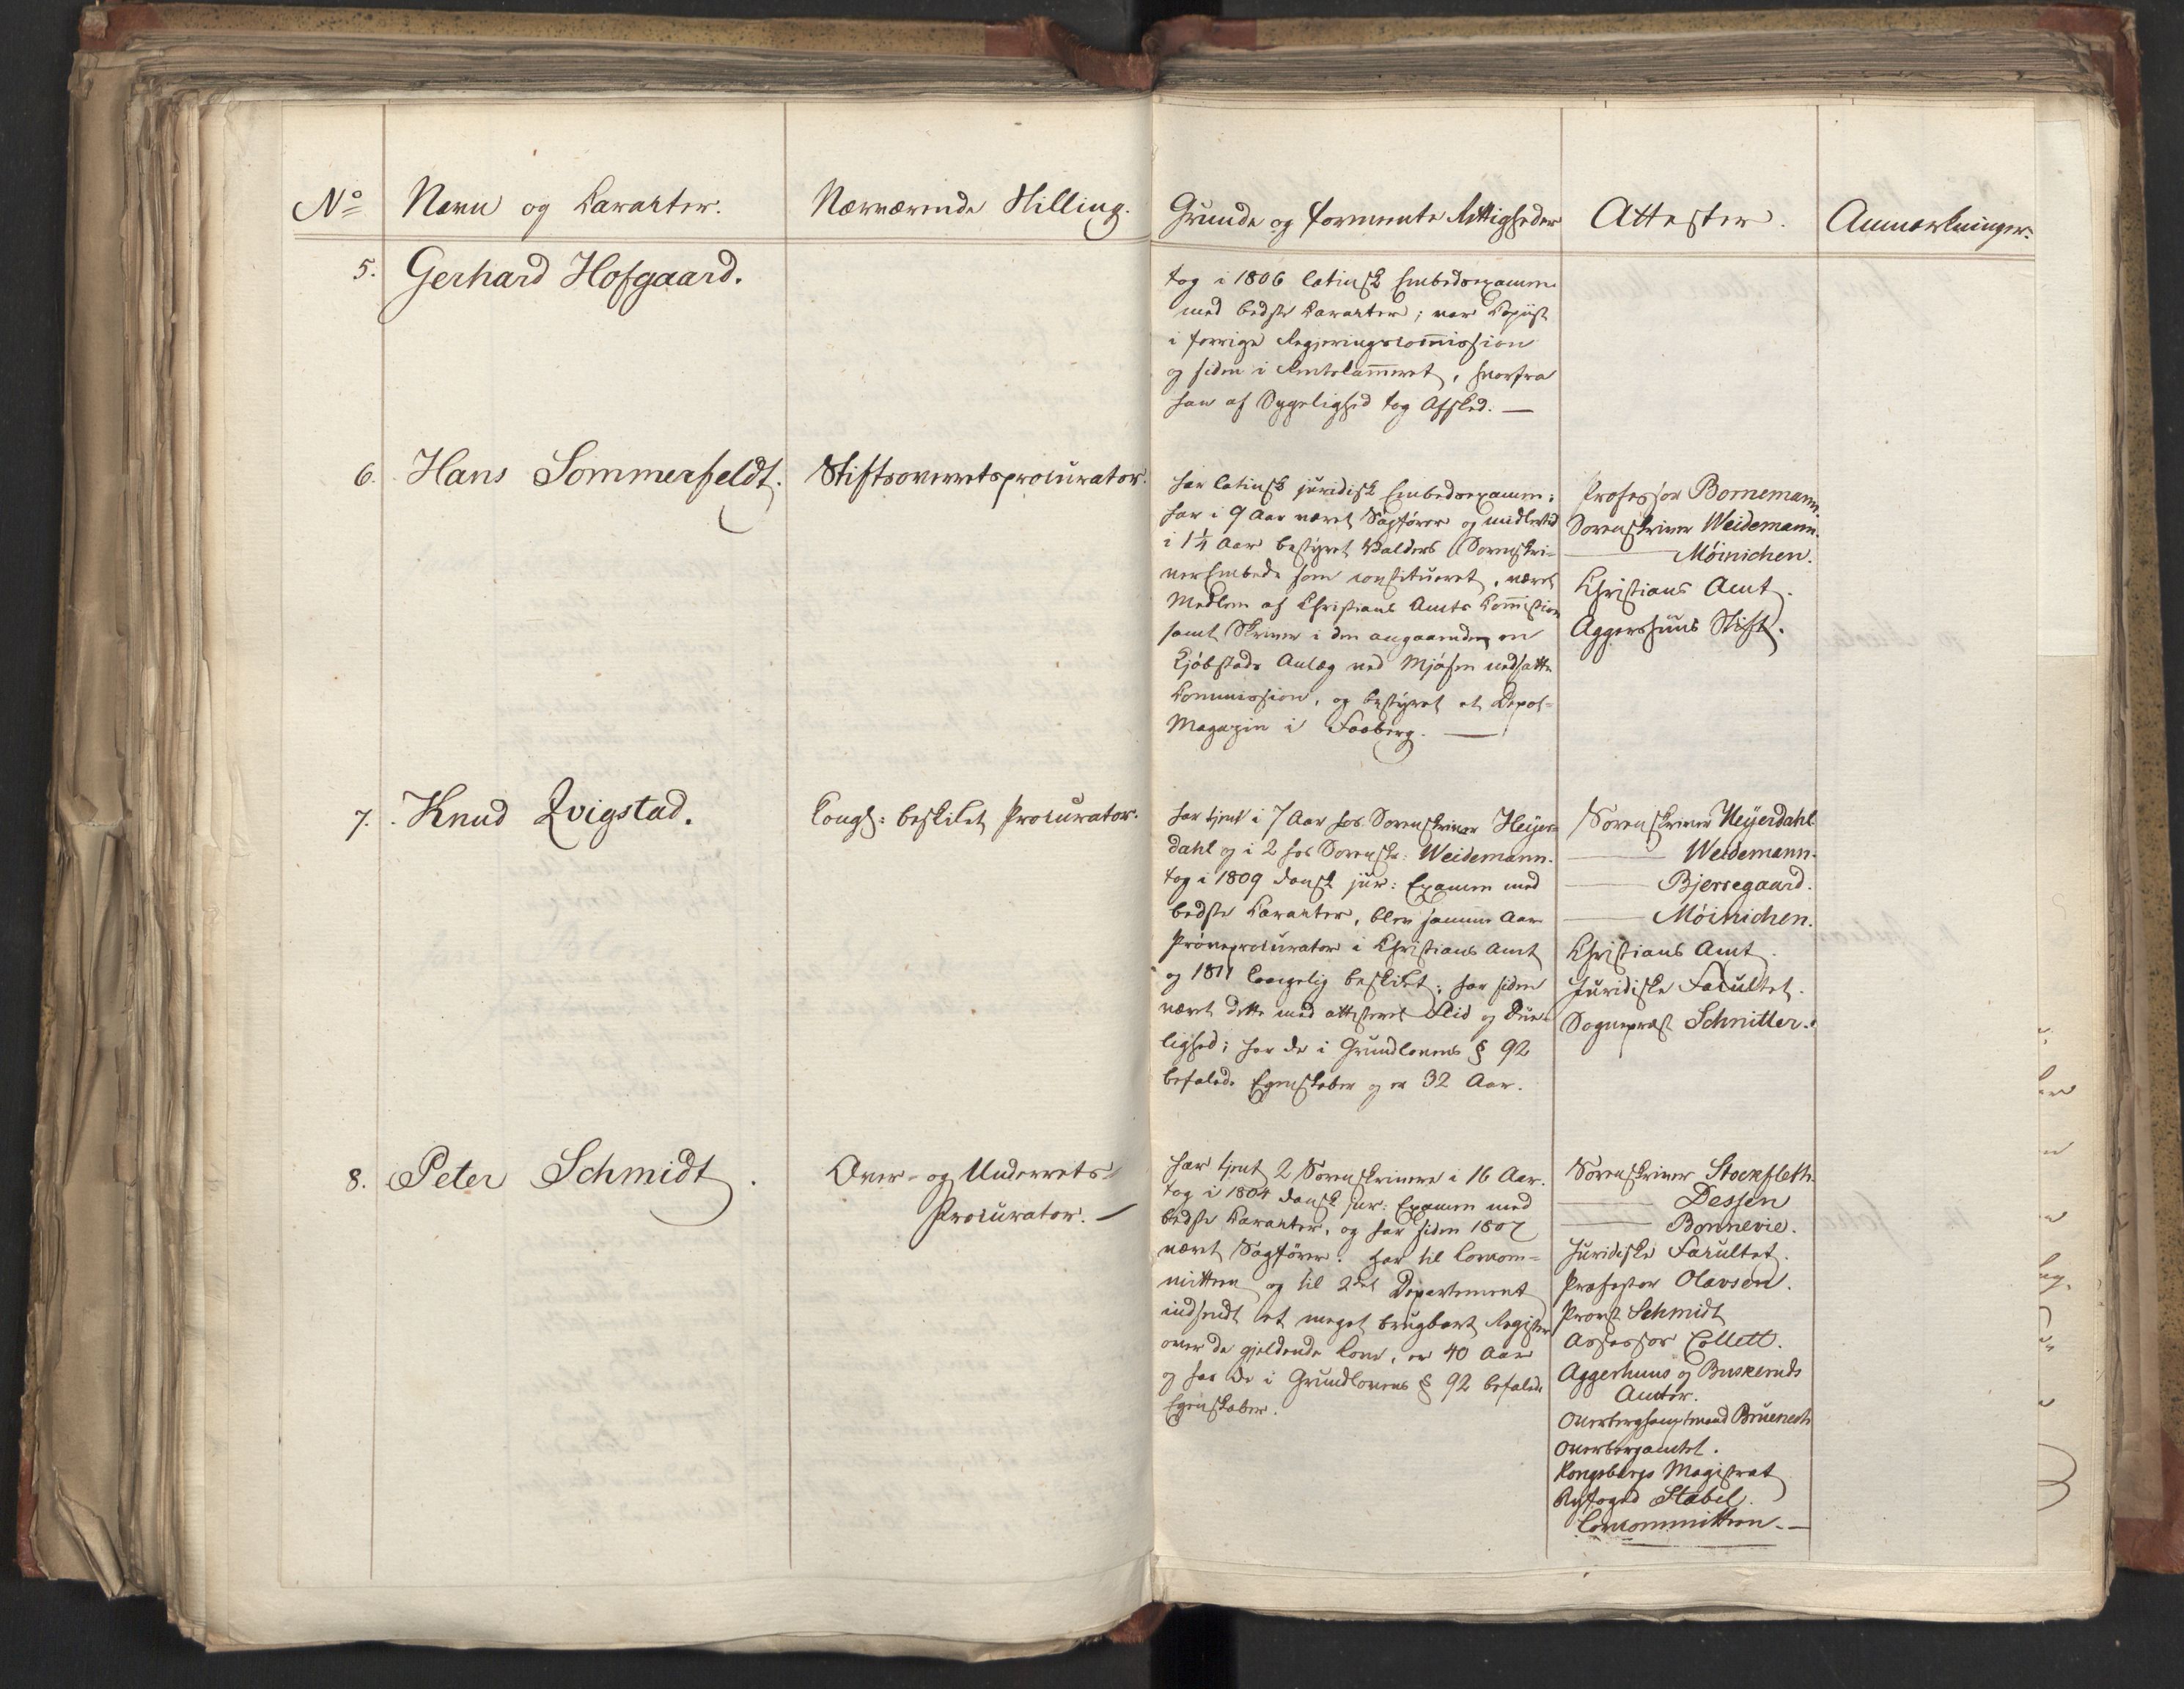 No Navn og Caracter. Nærværende Stilling. Grunde og formeente Rettigheder Attester. Anmærkninger.
5. Gerhard Hofgaard.
tog i 1806 latinsk Embedsexamen
med bedste Caracter; var Copiist
i forrige Regjeringscom̄ission
og siden i Rentekam̄eret, hvorfra
han af Sygelighed tog Afsked. —
6. Hans Sommerfeldt. Stiftsoverretsprocurator.
har latinsk juridisk Embedsexamen;
har i 9 Aar været Sagfører og midlertid
i 1¼ Aar bestyret Valders Sorenskri-
verEmbede som constitueret, været
Medlem af Christians Amts Com̄ission
samt Skriver i den angaaende en
Kjøbstads Anlæg ved Mjøsen nedsatte
Commission, og bestyret et Depot-
Magazin i Faaberg. —
Professor Bornemann.
Sorenskriver Weidemann.
— Møinichen.
Christians Amt.
Aggershuus Stift.
7. Knud Qvigstad. Congl: beskikket Procurator.
har tjent i 7 Aar hos Sorenskriver Heijer-
dahl og i 2 hos Sorenskr: Weidemann.
tog i 1809 dansk jur: Examen med
bedste Caracter, blev samme Aar
Prøveprocurator i Christians Amt
og 1811 Congelig beskikket; har siden
været dette med attesteret Flid og Due-
lighed; har de i Grundlovens § 92
befalede Egenskaber og er 32 Aar.
Sorenskriver Heijerdahl
— Weidemann.
— Bjerregaard.
— Møinichen.
Christians Amt.
Juridiske Facultet.
Sognepræst Schnitler.
8. Peter Schmidt. Over- og Underrets-
Procurator. —
har tjent 2 Sorenskrivere i 16 Aar.
tog i 1804 dansk jur: Examen med
bedste Caracter, og har siden 1807
været Sagfører. har til Lovcom-
mitteen og til 2det Departement
indsendt et meget brugbart Register
over de gjeldende Love, er 40 Aar
og har de i Grundlovens § 92 befalede
Egenskaber.
Sorenskriver Stockfleth.
— Dessen
— Bonnevie.
Juridiske Facultet.
Professor Olavsen.
Provst Schmidt
Assessor Collett.
Aggerhuus og Buskeruds
Amter.
Overberghauptmand Brünech
Overbergamtet.
Kongsbergs Magistrat
Byfoged Stabel.
Lovcommitteen. —